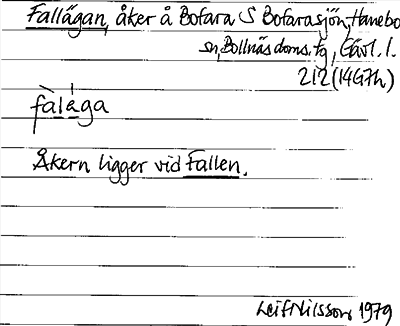 Fallägan, åker å Bofara S Bofarasjön, Hanebo
sn, Bollnäs doms. tg, Gävl. l.
212 (14G7h)
fàlága
Åkern ligger vid Fallen.
Leif Nilsson, 1979